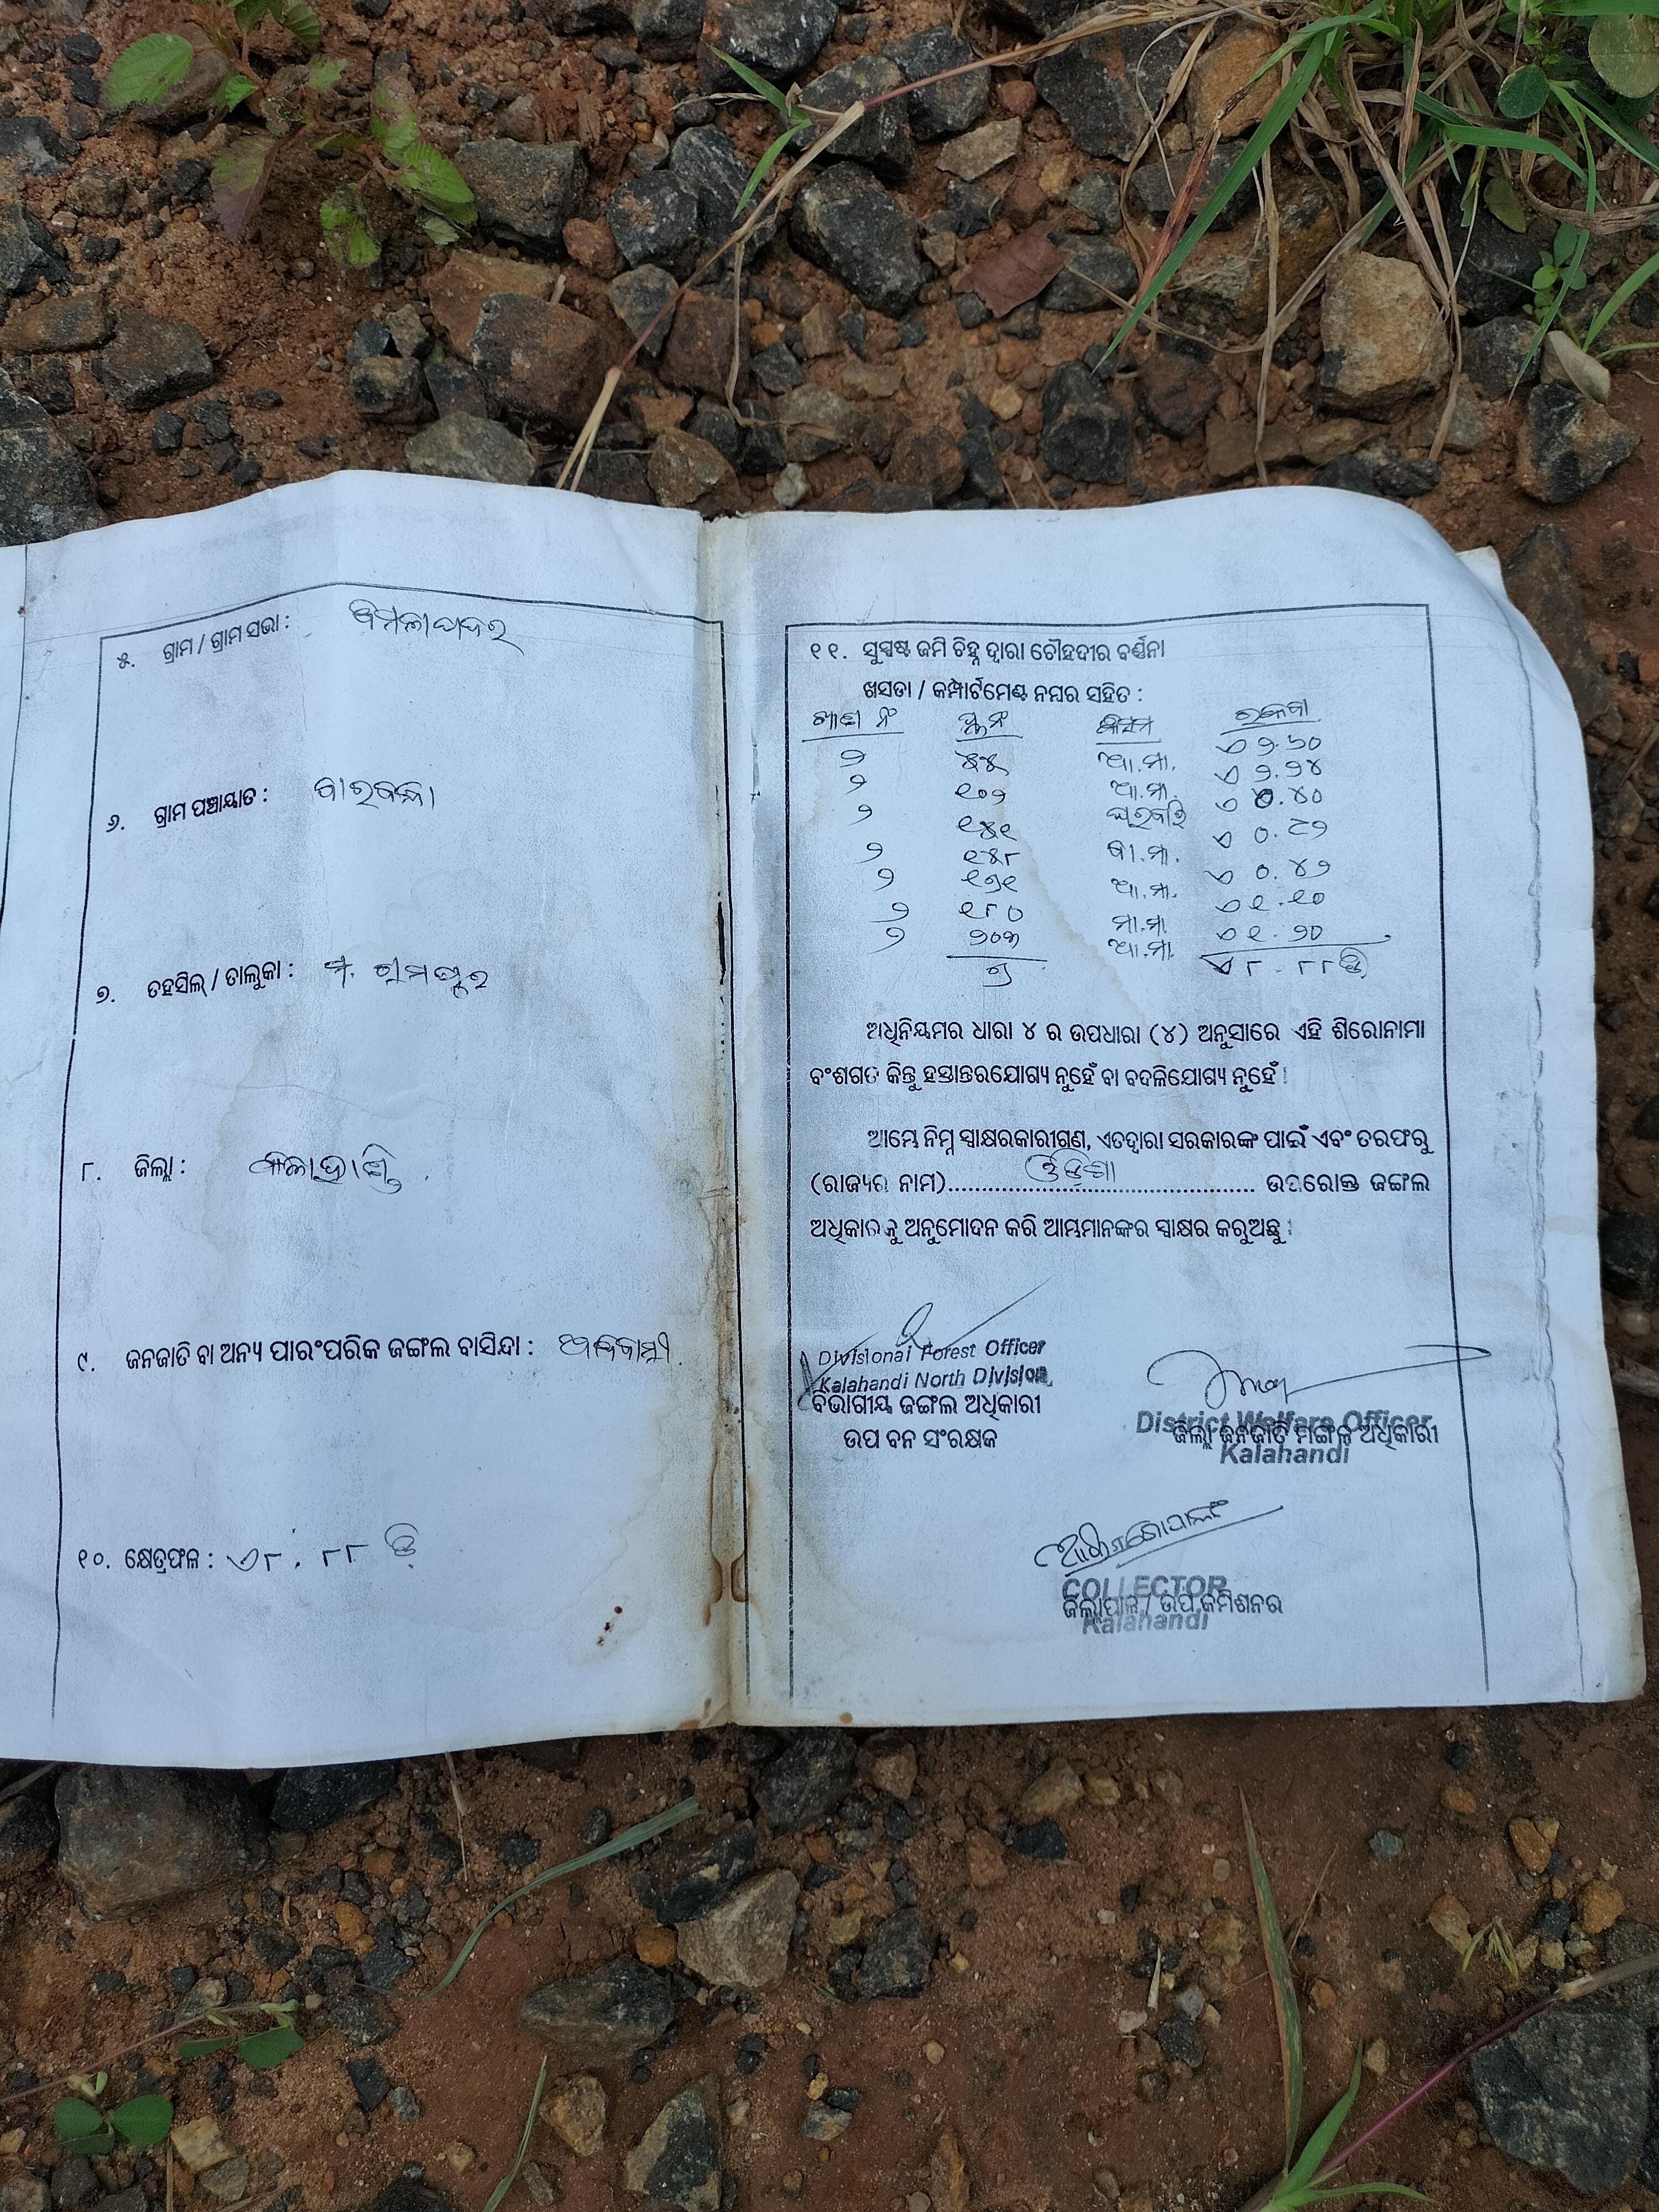 ୫. ଗ୍ରାମ / ଗ୍ରାମ ସଭା :
୬. ଗ୍ରାମ ପଞ୍ଚାୟାତ :
୭. ତହସିଲ୍ / ତାଲୁକା : ମ. ରାମପୁର
୮. ଜିଲ୍ଲା : କଳାହାଣ୍ଡି
୯. ଜନଜାତି ବା ଅନ୍ୟ ପାରଂପରିକ ଜଙ୍ଗଲ ବାସିନ୍ଦା : ଆଦିବାସୀ
୧୦. କ୍ଷେତ୍ରଫଳ : ଏ ୮.୮୮ ଡି
୧୧. ସୁସ୍ପଷ୍ଟ ଜମି ଚିହ୍ନ ଦ୍ୱାରା ଚୌହଦୀର ବର୍ଣ୍ଣନା
ଖସଡା / କମ୍ପାର୍ଟମେଣ୍ଟ ନମ୍ବର ସହିତ :
ଖାତା ନଂ ପ୍ଲଟ ନଂ କିସମ ରକବା
୨ ଆ.ମା. ଏ ୨.୬୦
୨ ୧୦୨ ଆ.ମା. ଏ ୨.୨୪
୨ ଘରବାରି ଏ ୦.୪୦
୨ ବା.ମା.
୨ ୧୭୧ ଆ.ମା. ଏ ୦.୪୨
୨ ୧୮୦ ମା.ମା ଏ ୧.୧୦
୨ ୨୦୩ ଆ.ମା. ଏ ୧.୨୦
୭ ଏ ୮.୮୮ ଡି
ଅଧିନିୟମର ଧାରା ୪ ର ଉପଧାରା (୪) ଅନୁସାରେ ଏହି ଶିରୋନାମା
ବଂଶଗତ କିନ୍ତୁ ହସ୍ତାନ୍ତରଯୋଗ୍ୟ ନୁହେଁ ବା ବଦଳିଯୋଗ୍ୟ ନୁହେଁ ।
ଆମ୍ଭେ ନିମ୍ନ ସ୍ୱାକ୍ଷରକାରୀଗଣ, ଏତଦ୍ୱାରା ସରକାରଙ୍କ ପାଇଁ ଏବଂ ତରଫରୁ
(ରାଜ୍ୟର ନାମ)....ଓଡିଶା.... ଉପରୋକ୍ତ ଜଙ୍ଗଲ
ଅଧିକାରକୁ ଅନୁମୋଦନ କରି ଆମ୍ଭମାନଙ୍କର ସ୍ୱାକ୍ଷର କରୁଅଛୁ ।
Divisional Forest Officer
Kalahandi North Division
ବିଭାଗୀୟ ଜଙ୍ଗଲ ଅଧିକାରୀ
ଉପ ବନ ସଂରକ୍ଷକ
District Welfare Officer
ଜିଲ୍ଲା ଜନଜାତି ମଙ୍ଗଳ ଅଧିକାରୀ
Kalahandi
COLLECTOR
ଜିଲ୍ଲାପାଳ / ଉପ କମିଶନର
Kalahandi